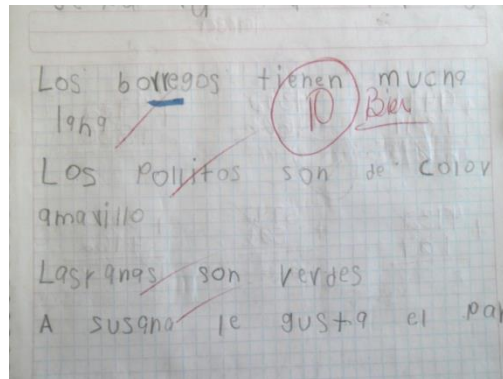 Los borregos tienen mucha
lana
10 Bien
Los Pollitos son de color
amarillo
Las ranas son verdes
A susana le gusta el pan